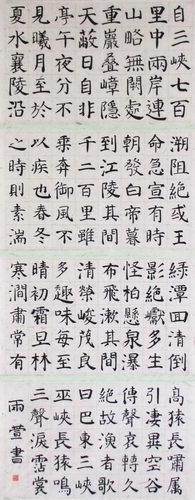 自三峽七百
里中兩岸連
山略無闕處
重巖疊嶂隱
天蔽日自非
亭午夜分不
見曦月至於
夏水襄陵沿
溯阻絕或王
命急宣有時
朝發白帝暮
到江陵其間
千二百里雖
乘奔御風不
以疾也春冬
之時則素湍
綠潭回清倒
影絕巘多生
怪柏懸泉瀑
布飛漱其間
清榮峻茂良
多趣味每至
晴初霜旦林
寒澗肅常有
高猿長嘯屬
引淒異空谷
傳聲哀轉久
絕故漁者歌
曰巴東三峽
巫峽長猿鳴
三聲淚霑裳
雨萱書